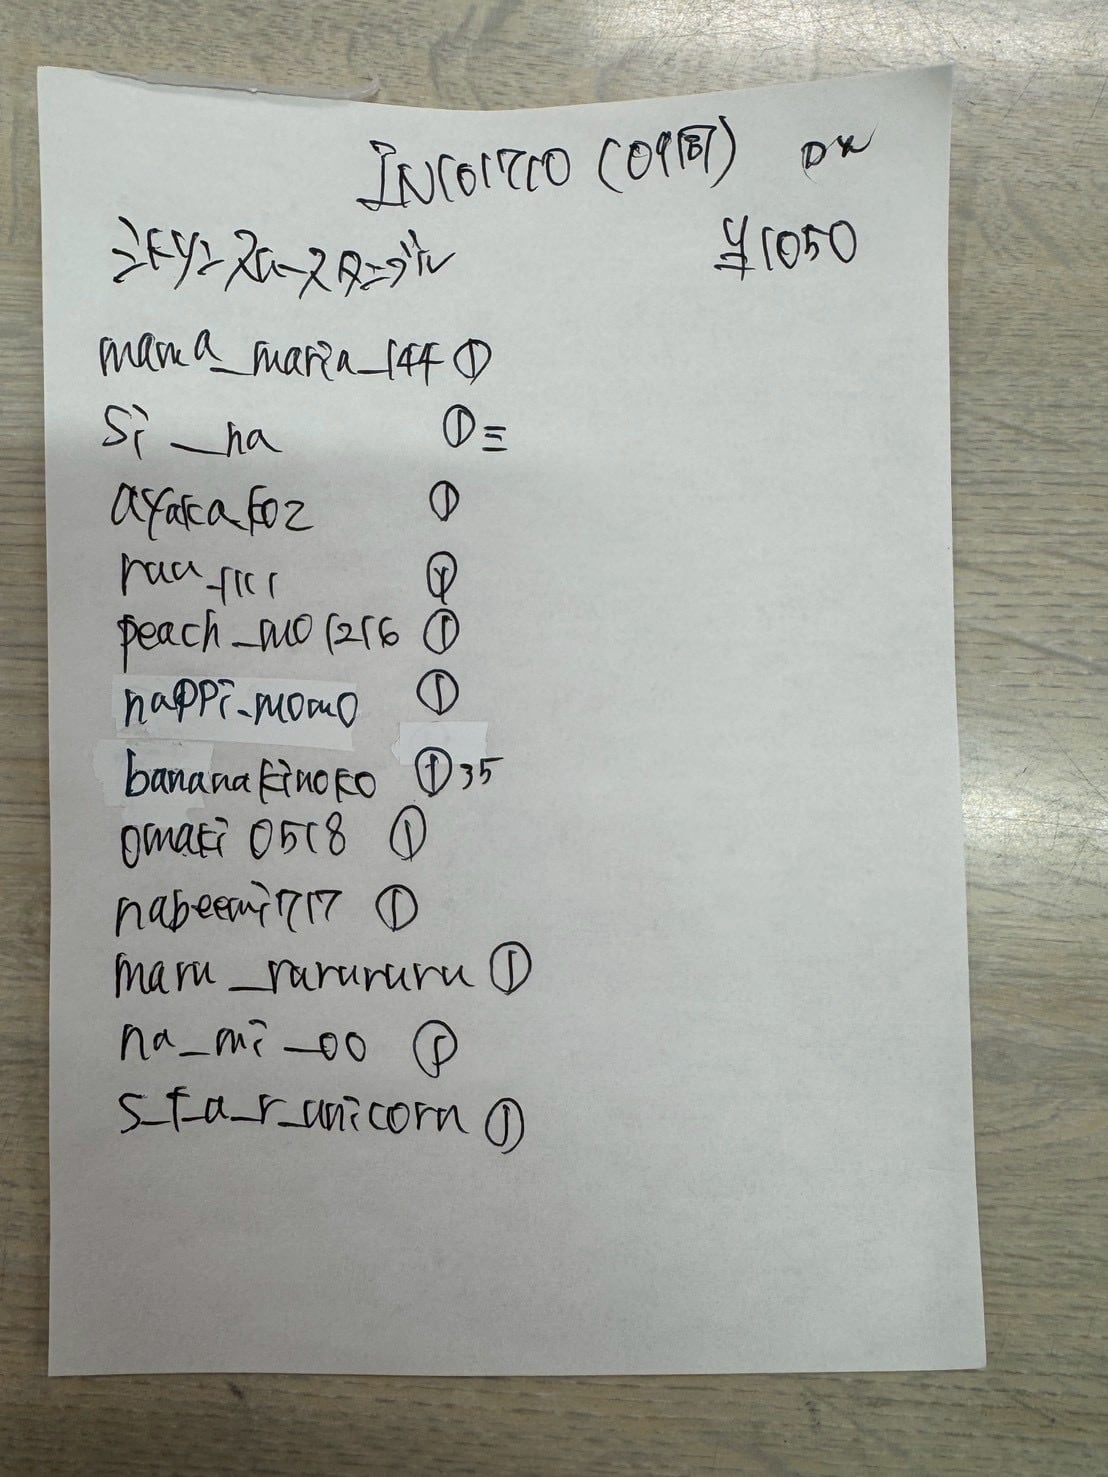 IN1017210 (09月) DX
ミドリンスロースタンプル ¥1050
mama_maria_144 ①
si_na ① ≡
ayaka_k02 ①
ruu_1111
peach_mo1216 ①
nappi_momo ①
bananakinoko ① 35
omaki0518 ①
nabeemi717 ①
maru_rarururu ①
na_mi_00 ①
s_t_a_r_unicorn ①